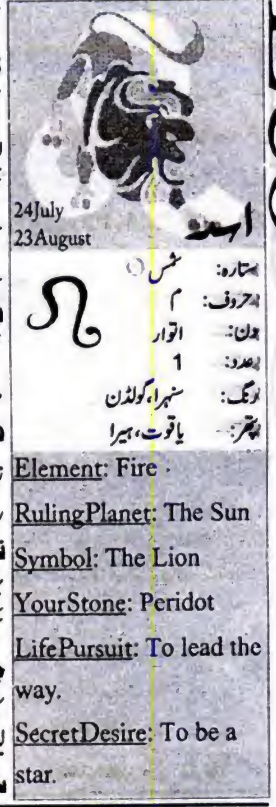 24July
23August
اسد
ستارہ: شمس
حروف: م
دن: اتوار
عدد: 1
رنگ: سنہرا،گولڈن
پتھر: یاقوت،ہیرا
Element: Fire
RulingPlanet: The Sun
Symbol: The Lion
YourStone: Peridot
LifePursuit: To lead the
way.
SecretDesire: To be a
star.